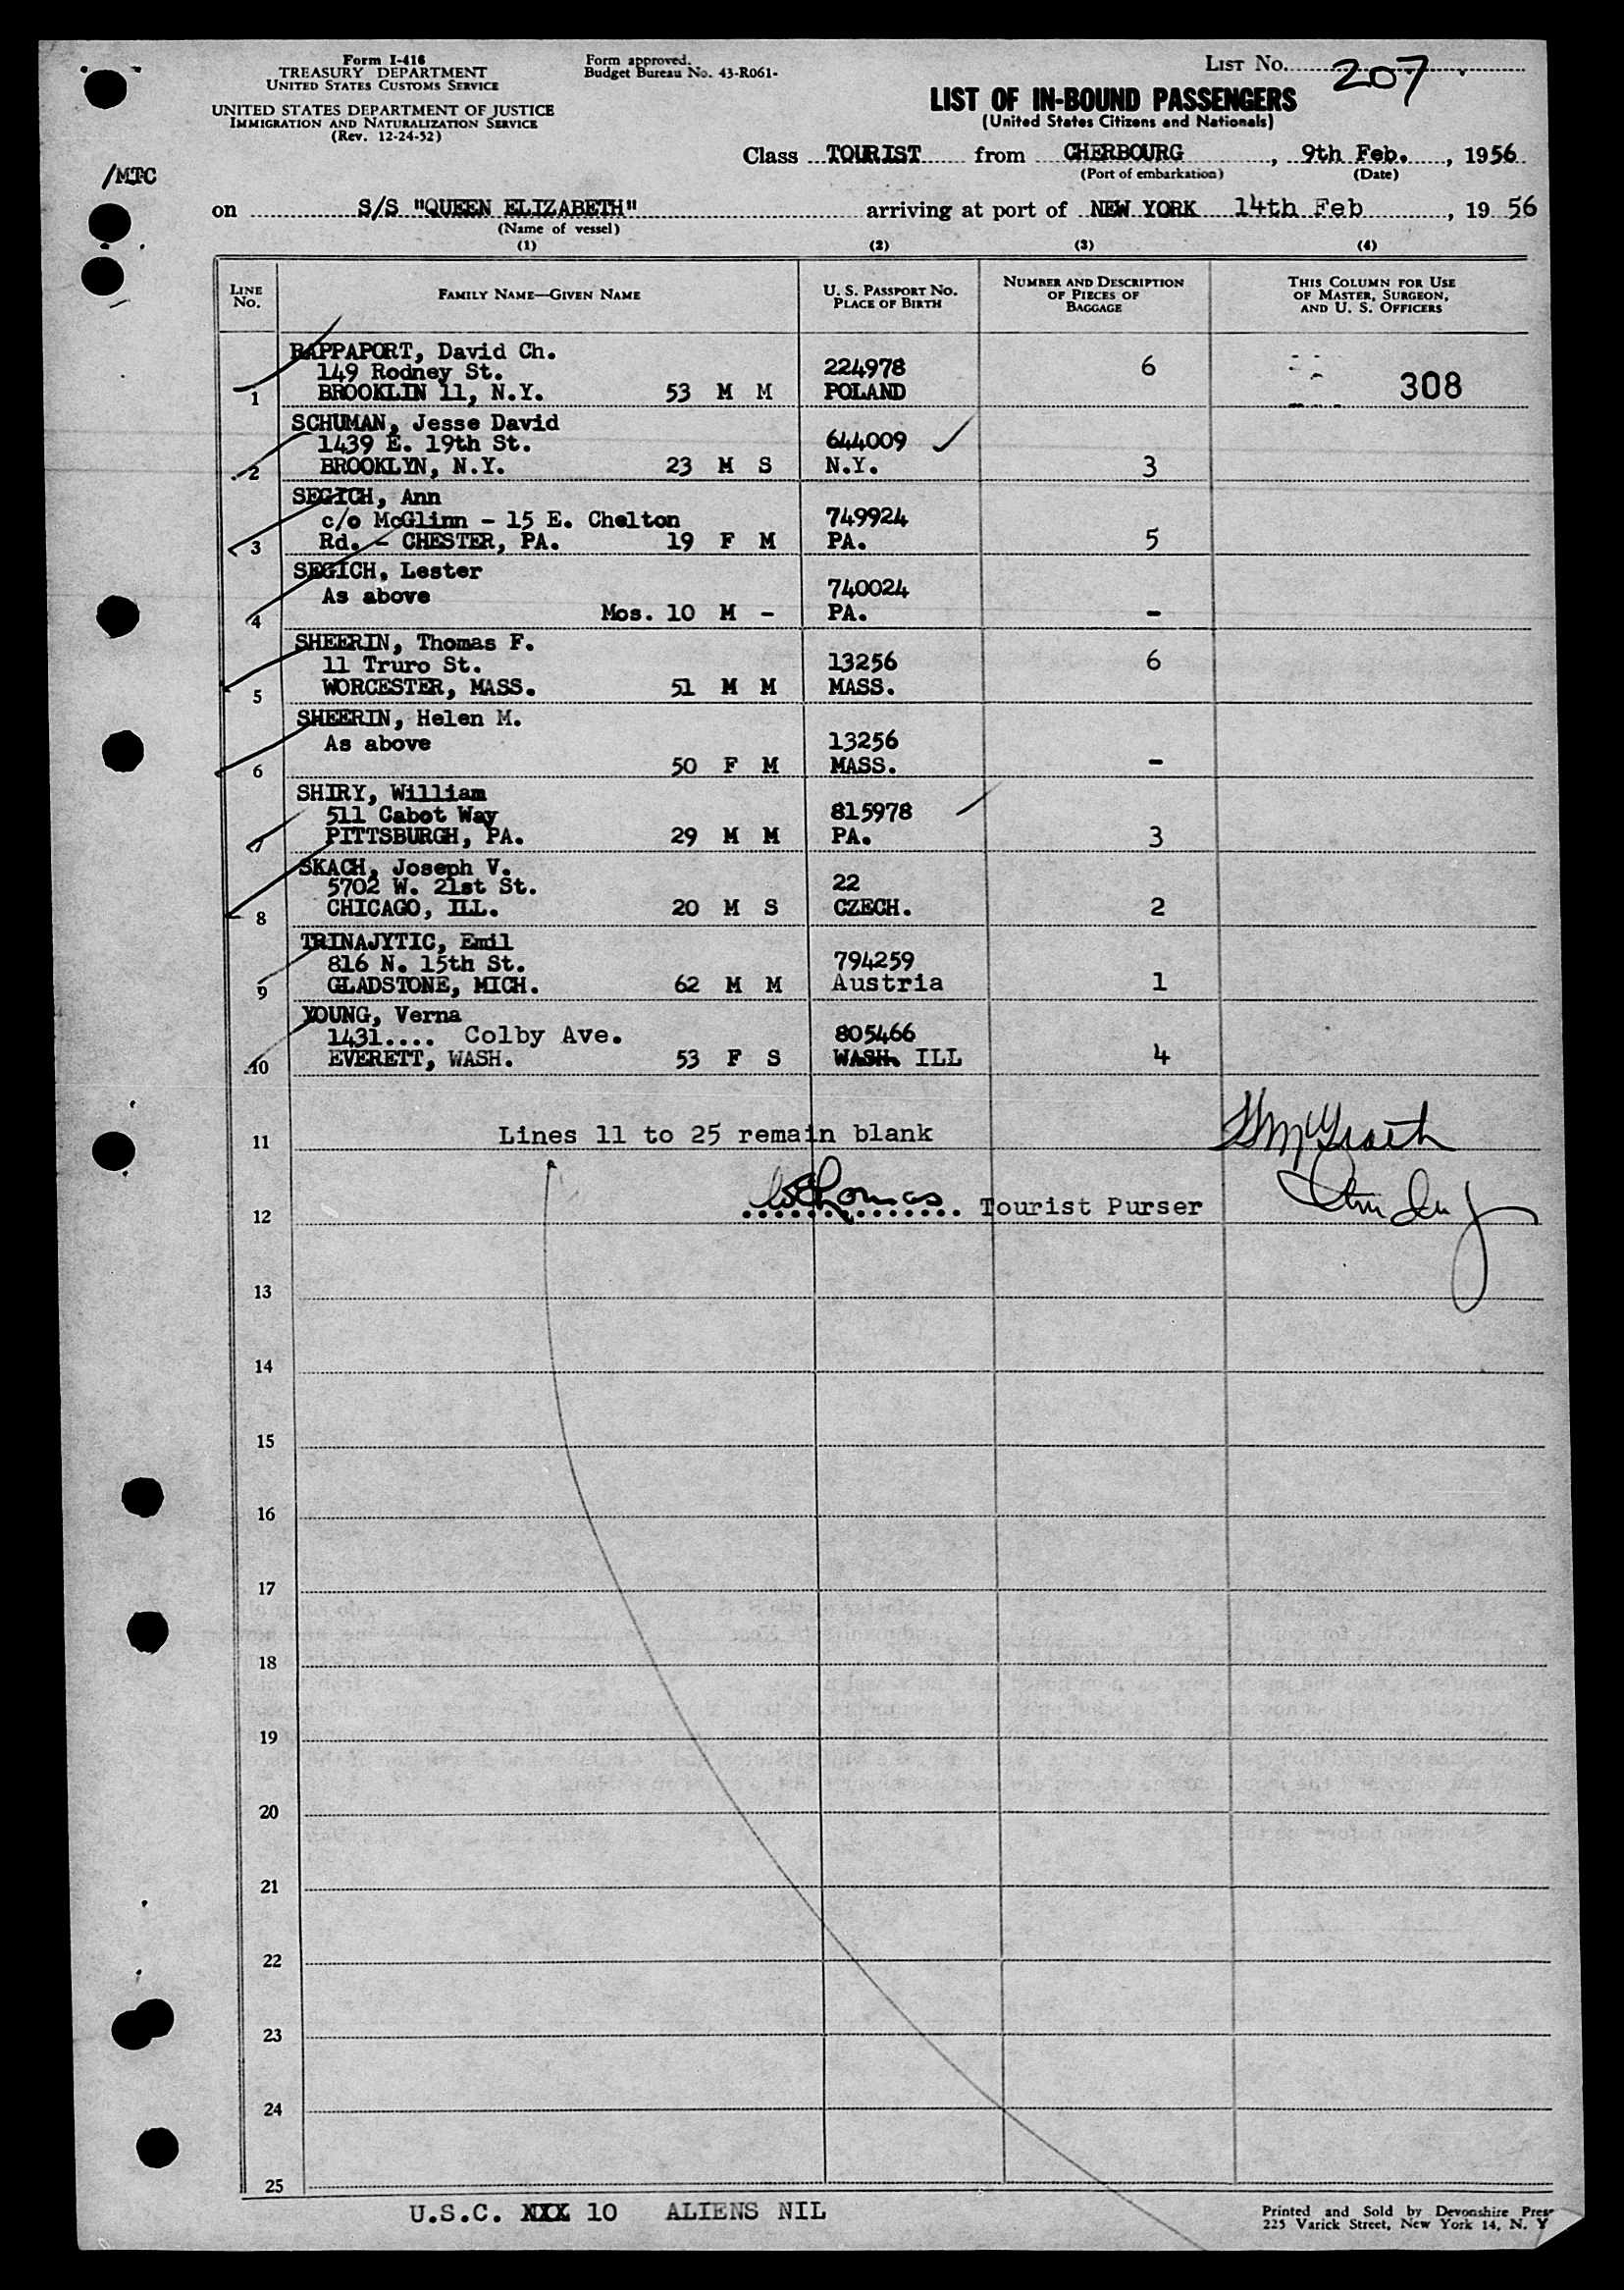 Form I-418
TREASURY DEPARTMENT
UNITED STATES CUSTOMS SERVICE
UNITED STATES DEPARTMENT OF JUSTICE
IMMIGRATION AND NATURALIZATION SERVICE
(Rev. 12-24-52)
Form approved.
Budget Bureau No. 43-R061-
LIST NO. 207
LIST OF IN-BOUND PASSENGERS
(United States Citizens and Nationals)
Class TOURIST from CHERBOURG, 9th Feb., 1956
(Port of embarkation) (Date)
/MTC
on S/S "QUEEN ELIZABETH" arriving at port of NEW YORK 14th Feb, 19 56
(Name of vessel)
(1) (2) (3) (4)
LINE NO.
FAMILY NAME—GIVEN NAME
U. S. PASSPORT NO.
PLACE OF BIRTH
NUMBER AND DESCRIPTION
OF PIECES OF
BAGGAGE
THIS COLUMN FOR USE
OF MASTER, SURGEON,
AND U. S. OFFICERS
RAPPAPORT, David Ch.
149 Rodney St. 224978 6
1 BROOKLIN 11, N.Y. 53 M M POLAND 308
SCHUMAN, Jesse David
1439 E. 19th St. 644009
2 BROOKLYN, N.Y. 23 M S N.Y. 3
SEGICH, Ann
c/o McGlinn - 15 E. Chelton 749924
3 Rd. - CHESTER, PA. 19 F M PA. 5
SEGICH, Lester
As above 740024
4 Mos. 10 M - PA. -
SHEERIN, Thomas F.
11 Truro St. 13256 6
5 WORCESTER, MASS. 51 M M MASS.
SHEERIN, Helen M.
As above 13256
6 50 F M MASS. -
SHIRY, William
511 Cabot Way 815978
7 PITTSBURGH, PA. 29 M M PA. 3
SKACH, Joseph V.
5702 W. 21st St. 22
8 CHICAGO, ILL. 20 M S CZECH. 2
TRINAJYTIC, Emil
816 N. 15th St. 794259
9 GLADSTONE, MICH. 62 M M Austria 1
YOUNG, Verna
1431.... Colby Ave. 805466
10 EVERETT, WASH. 53 F S WASH. ILL 4
11 Lines 11 to 25 remain blank
12 Tourist Purser
13
14
15
16
17
18
19
20
21
22
23
24
25
U.S.C. 10 ALIENS NIL
Printed and Sold by Devonshire Press
225 Varick Street, New York 14, N. Y